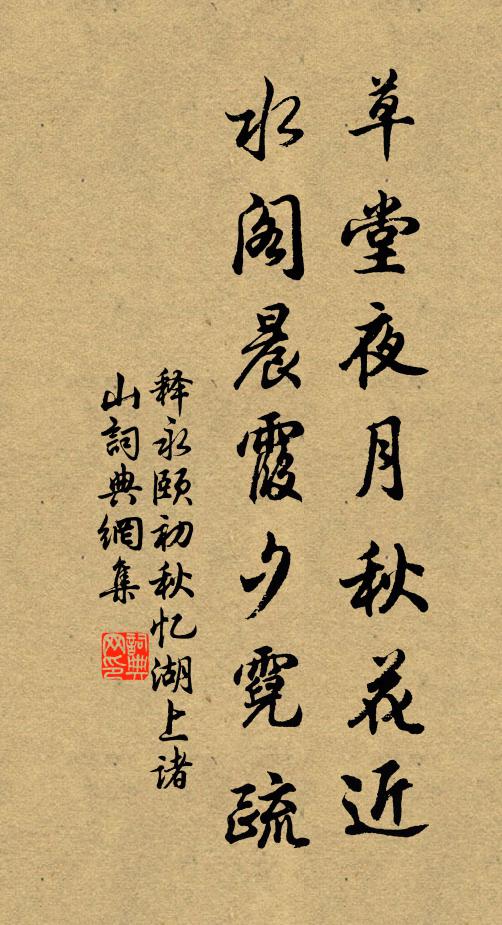 草堂夜月秋花近
水阁晨霞夕霓疏
释永颐初秋忆湖上诸
山詞典網集
詞典
网印